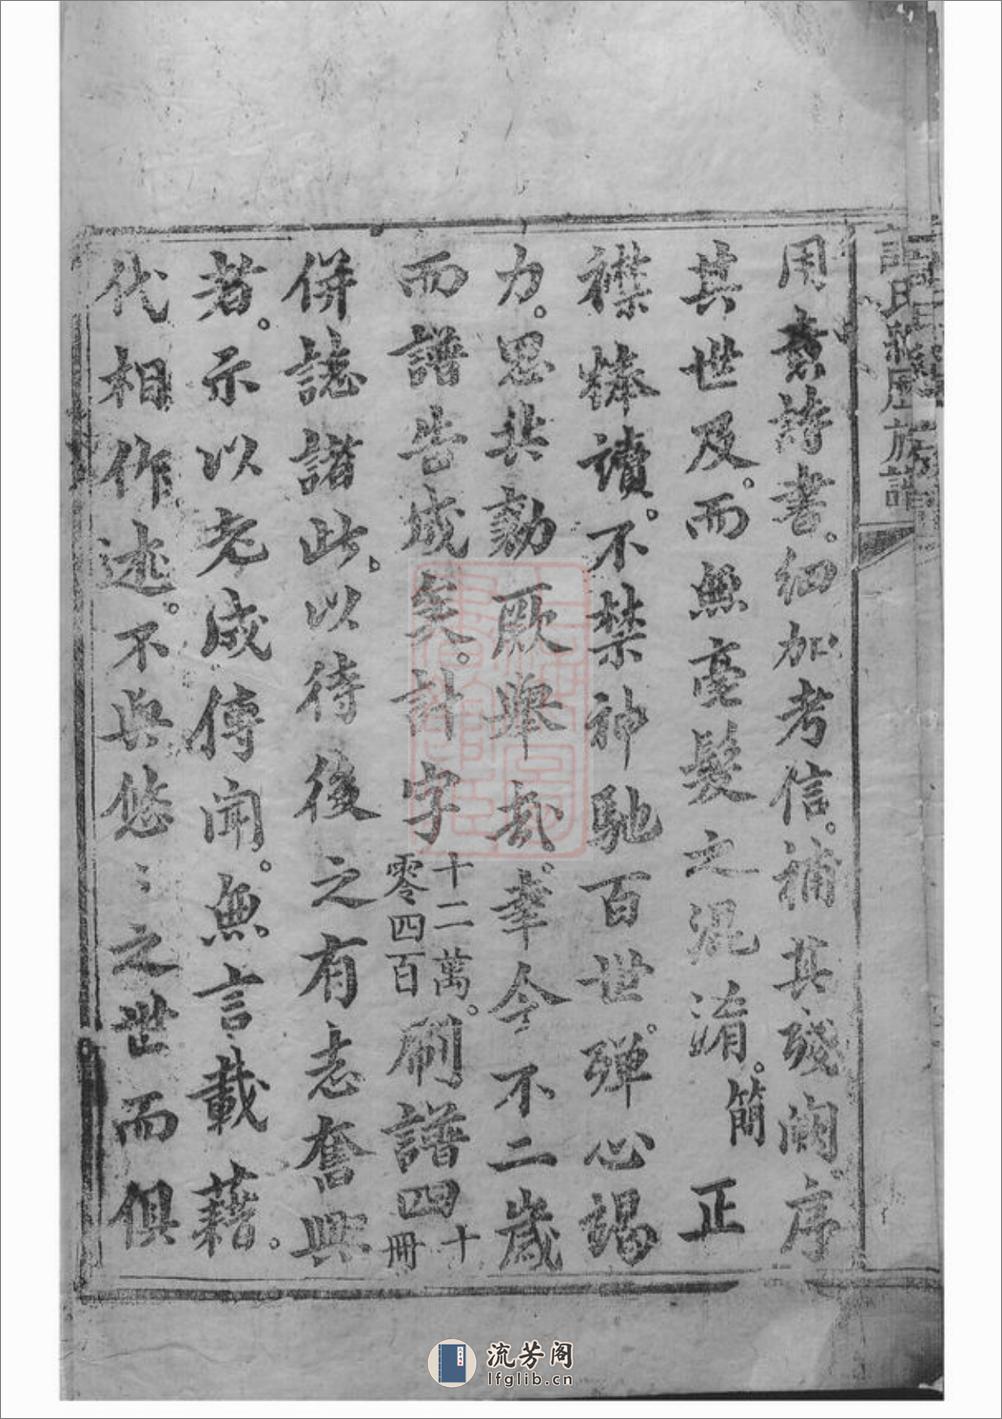 用素詩書。細加考信。補其殘闕。序
其世及。而無亳髮之混淆。簡 正
襟捧讀。不禁神馳百世。殫心竭
力。思共勷厥舉哉。幸今不二歲
而譜告成矣。計字十二萬。零四百刷譜四十冊
併誌諸此。以待後之有志奮興
者。示以老成傳聞。無言載藉。
代相作述。不與悠〻之世而俱
流芳阁
lfglib.cn